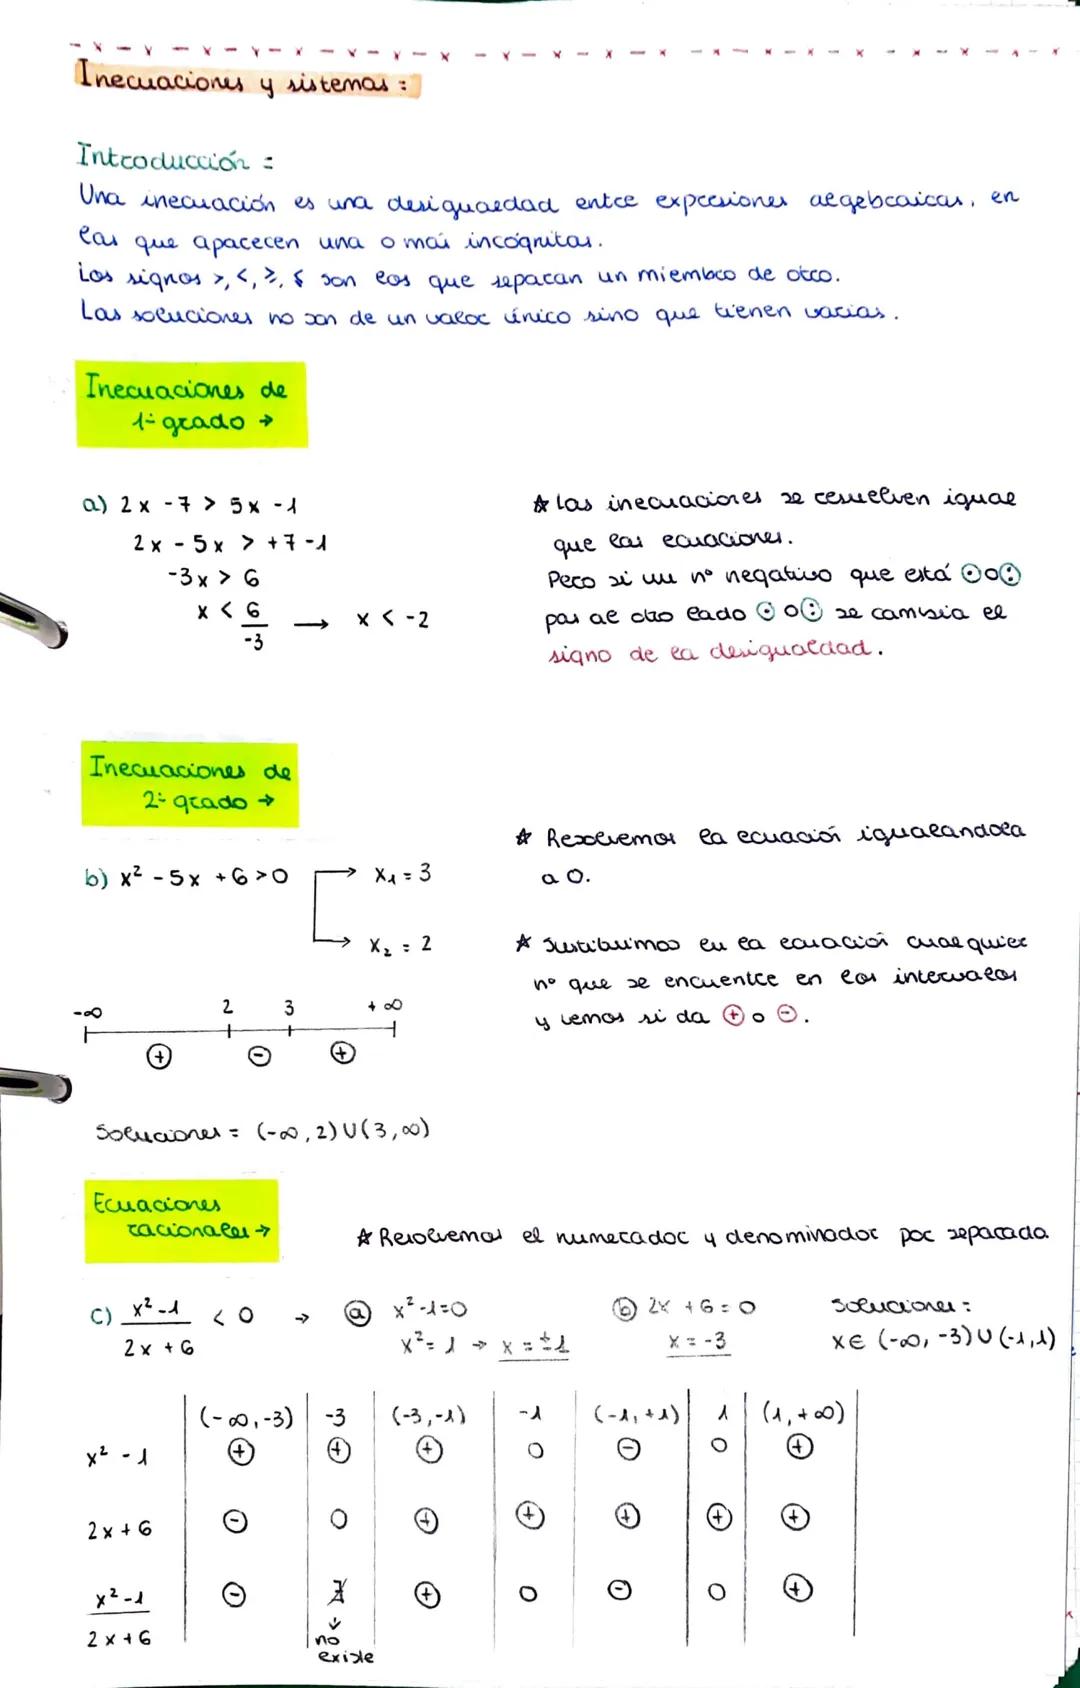 Inecuaciones y sistemas :
Introducción :
Una inecuación es una desigualdad entre expresiones algebraicas, en
las que aparecen una o más incógnitas.
Los signos >, <, ≥, ≤ son los que separan un miembro de otro.
Las soluciones no son de un valor único sino que tienen varias.
Inecuaciones de
1º grado →
a) 2x - 7 > 5x - 1
2x - 5x > +7 - 1
-3x > 6
x < 6/-3 → x < -2
☆ Las inecuaciones se resuelven igual
que las ecuaciones.
Pero si un nº negativo que está ⊙ o ÷
pas al otro lado ⊙ o ÷ se cambia el
signo de la desigualdad.
Inecuaciones de
2º grado →
b) x² - 5x + 6 > 0 → x₁ = 3
→ x₂ = 2
☆ Resolvemos la ecuación igualandola
a 0.
☆ Sustituimos en la ecuación cualquier
nº que se encuentre en los intervalos
y vemos si da ⊕ o ⊖.
-∞ 2 3 +∞
⊕ ⊖ ⊕
Soluciones = (-∞, 2) U (3, ∞)
Ecuaciones
racionales →
☆ Resolvemos el numerador y denominador por separado
c) x² - 1 / 2x + 6 < 0 → ⓐ x² - 1 = 0
x² = 1 → x = ±1
ⓑ 2x + 6 = 0
x = -3
Soluciones :
x ∈ (-∞, -3) U (-1, 1)
(-∞, -3) -3 (-3, -1) -1 (-1, +1) 1 (1, +∞)
x² - 1 ⊕ ⊕ ⊕ 0 ⊖ 0 ⊕
2x + 6 ⊖ 0 ⊕ ⊕ ⊕ ⊕ ⊕
x² - 1 / 2x + 6 ⊖ ∄ ⊕ 0 ⊖ 0 ⊕
no
existe